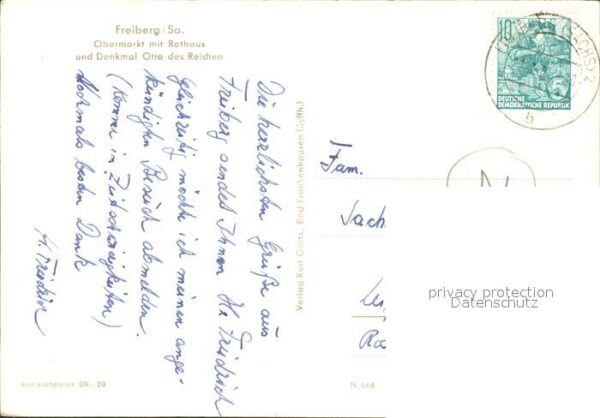 Freiberg/Sa.
Obermarkt mit Rathaus
und Denkmal Otto des Reichen
Die herzlichsten Grüße aus
Freiberg sendet Ihnen H. Friedrich
Gleichzeitig möchte ich meinen ange-
kündigten Besuch abmelden.
(Komme in Zeitschwierigkeiten)
Nochmals besten Dank
H. Friedrich
Verbraucherpreis DM -,20
Verlag Kurt Bad Frankenhausen (Kyffh.)
N
10
DEUTSCHE
DEMOKRATISCHE REPUBLIK
FREIBERG (SACHS) 2
b
N
Fam.
Sach
Lei
privacy protection
Datenschutz